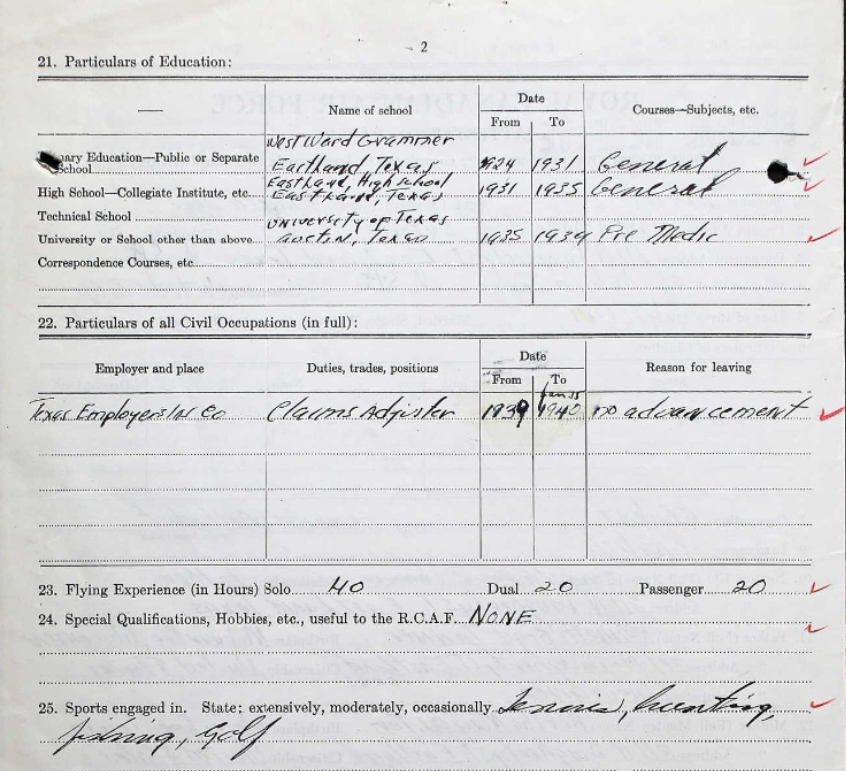 2
21. Particulars of Education:
Name of school
Date
From To
Courses—Subjects, etc.
West Ward Grammer
ary Education—Public or Separate School Eastland Texas 1924 1931 General
Eastland, High school
High School—Collegiate Institute, etc. Eastland, Texas 1931 1935 General
Technical School
University of Texas
University or School other than above Austin, Texas 1935 1939 Pre Medic
Correspondence Courses, etc.
22. Particulars of all Civil Occupations (in full):
Employer and place Duties, trades, positions Date From To Reason for leaving
Jan 15
Texas Employers Ins Co Claims Adjister 1939 1940 no advancement
23. Flying Experience (in Hours) Solo 40 Dual 20 Passenger 20
24. Special Qualifications, Hobbies, etc., useful to the R.C.A.F. NONE
25. Sports engaged in. State: extensively, moderately, occasionally Tennis, hunting,
fishing, Golf